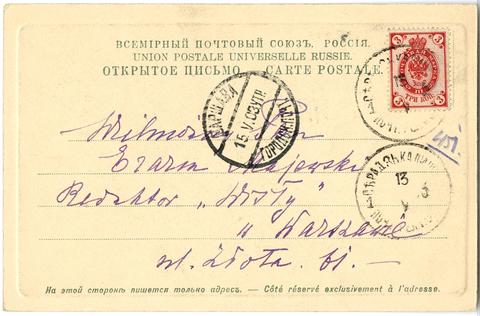 ВСЕМІРНЫЙ ПОЧТОВЫЙ СОЮЗЪ. РОССІЯ.
UNION POSTALE UNIVERSELLE RUSSIE.
ОТКРЫТОЕ ПИСЬМО. — CARTE POSTALE.
3 3
3 3
ТРИ КОП.
ВАРШАВА
15 V 03 УТР.
13
Wilmożny Pan
Erazm Majewski
Redaktor „Wisły"
w Warszawie
ul. Złota 61.—
451.
На этой сторонѣ пишется только адресъ. — Côté réservé exclusivement à l'adresse.